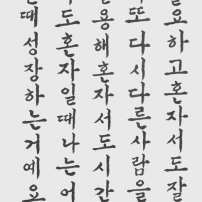 요하고혼자서도잘
또다시다른사람을
용해혼자서도시간
도혼자일때나는어
때성장하는거예